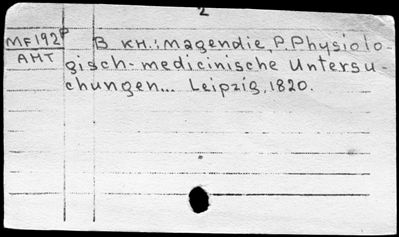 2
MF192P В кн.: Magendie, P. Physiolo-
АНТ gisch-medicinische Untersu-
chungen... Leipzig, 1820.